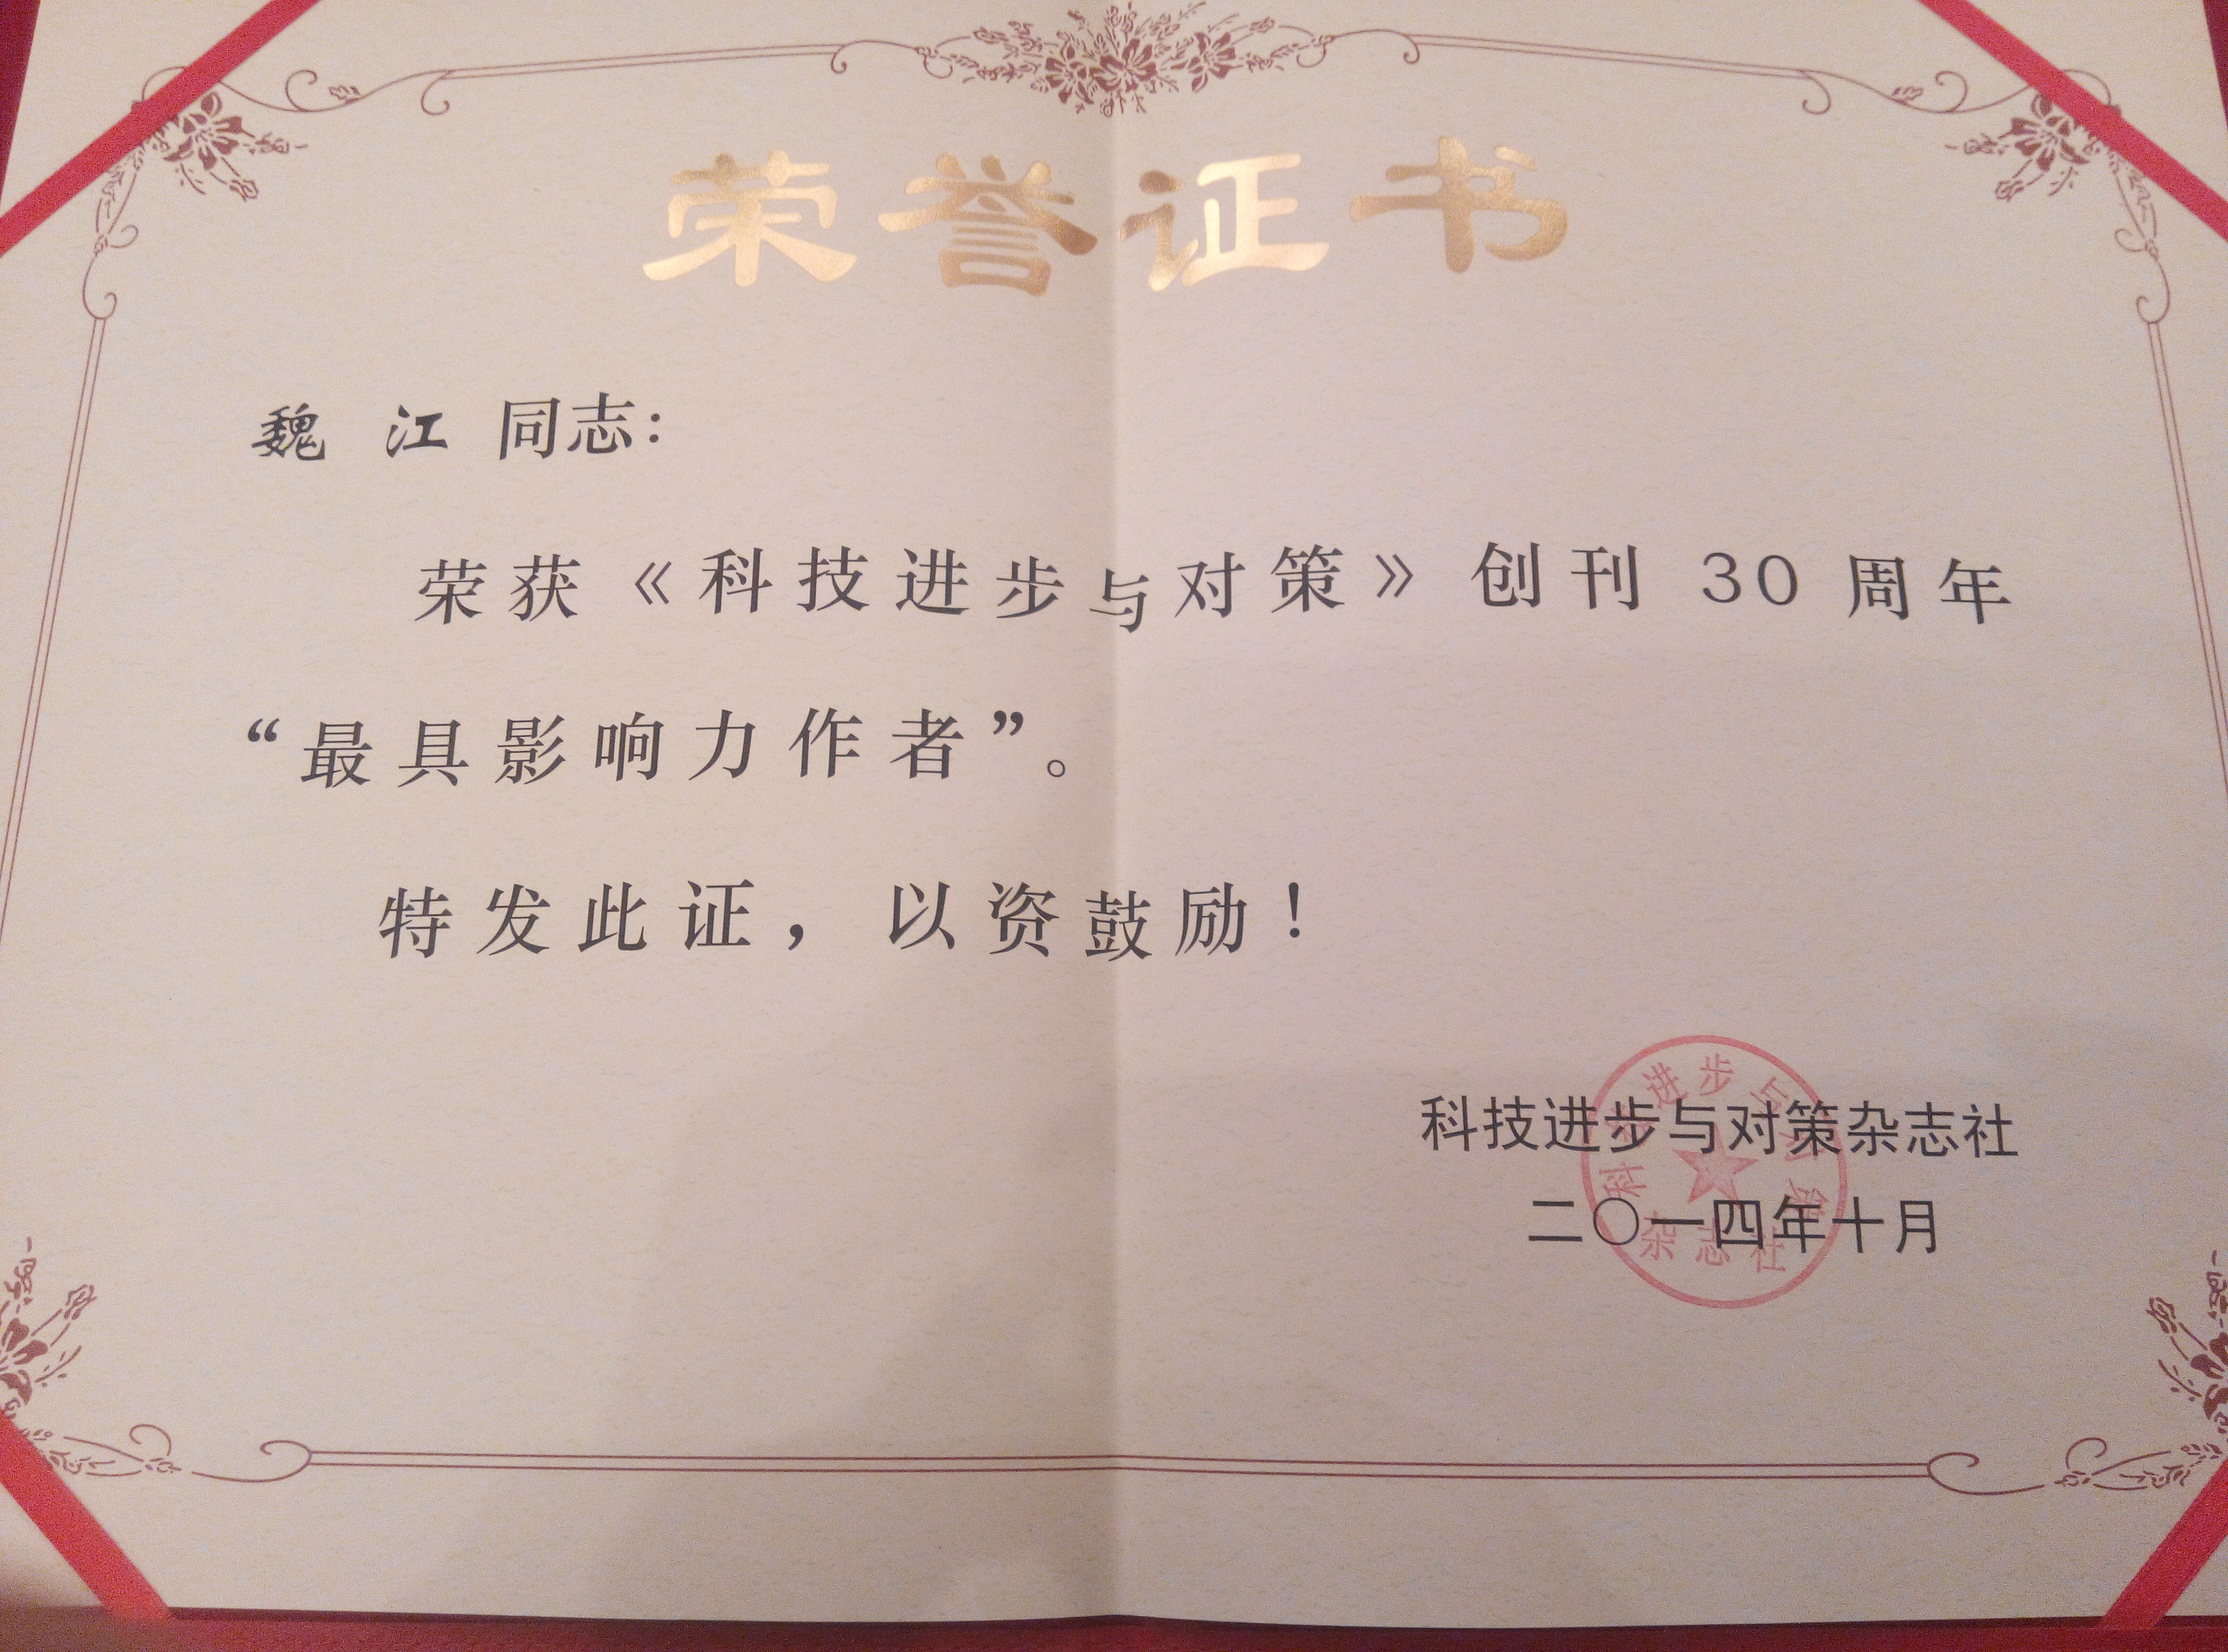 荣誉证书
魏 江 同志：
荣获《科技进步与对策》创刊 30 周年
“最具影响力作者”。
特发此证，以资鼓励！
科技进步与对策杂志社
二〇一四年十月
科技进步与对策
杂志社